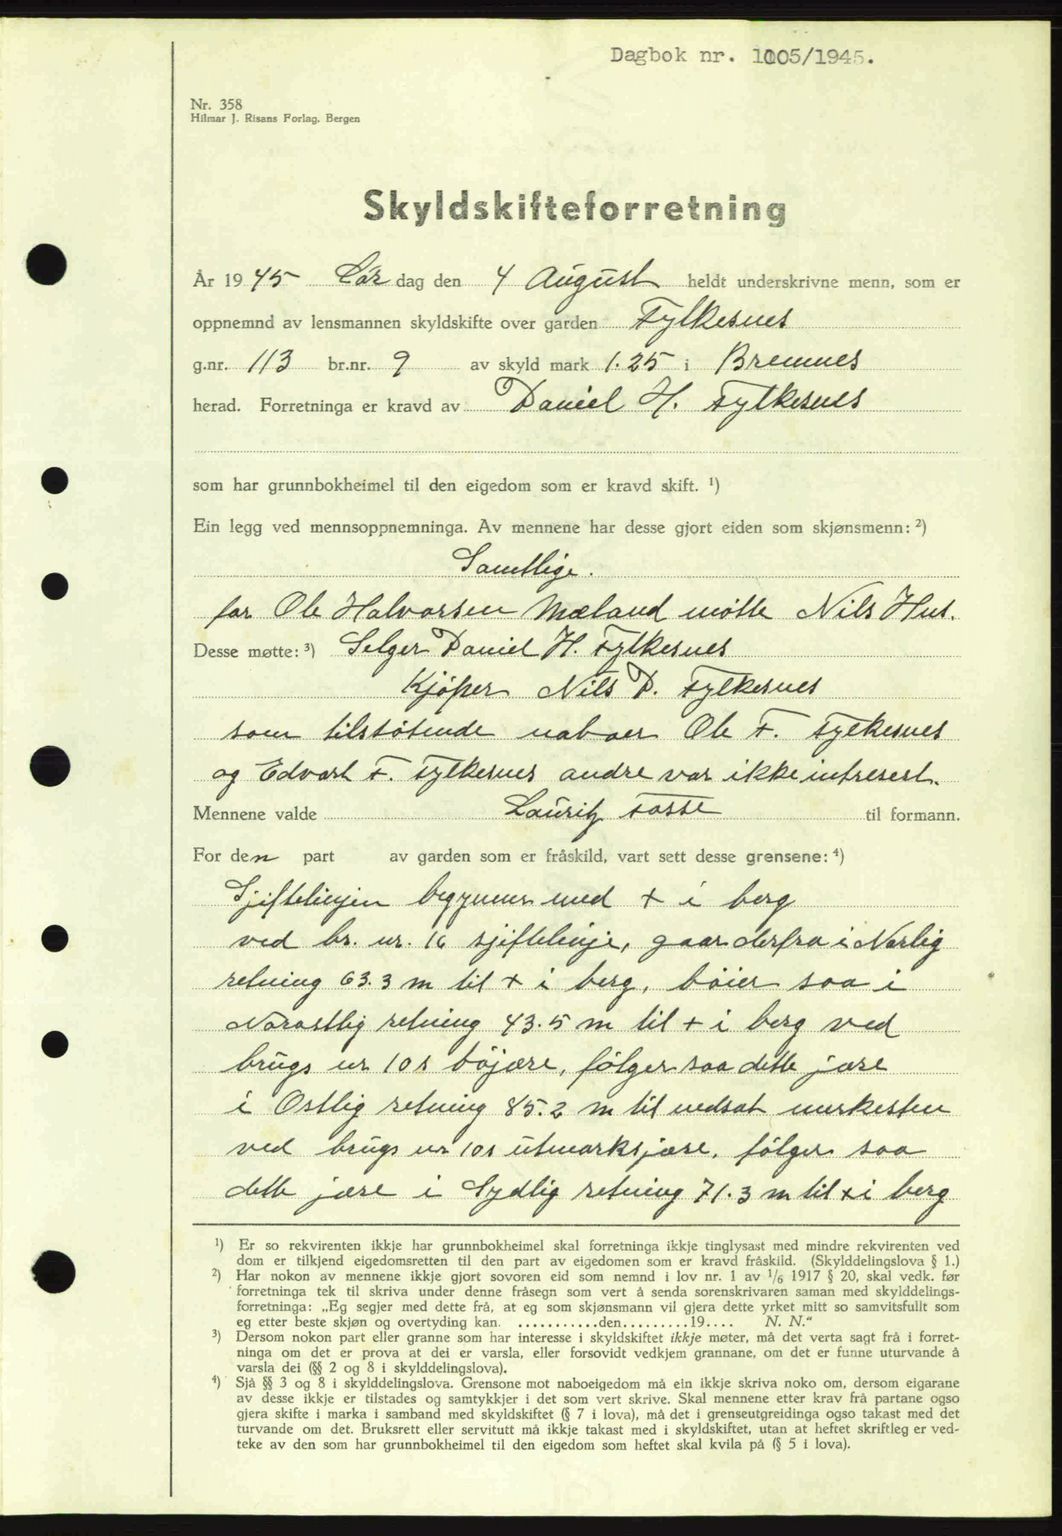 Dagbok nr. 1005/1945.
Nr. 358
Hilmar J. Risans Forlag, Bergen
Skyldskifteforretning
År 1945 Lör dag den 4 August heldt underskrivne menn, som er
oppnemnd av lensmannen skyldskifte over garden Fylkesnes
g.nr. 113 br.nr. 9 av skyld mark 1.25 i Bremnes
herad. Forretninga er kravd av Daniel H. Fylkesnes
som har grunnbokheimel til den eigedom som er kravd skift. ¹)
Ein legg ved mennsoppnemninga. Av mennene har desse gjort eiden som skjønsmenn: ²)
Samtlige.
for Ole Halvorsen Mæland møtte Nils Hus.
Desse møtte: ³) Selger Daniel H. Fylkesnes
Kjöper Nils D. Fylkesnes
som tilstötende naboer Ole F. Fylkesnes
og Edvart F. Fylkesnes andre var ikke intresert.
Mennene valde Lauritz Fosse til formann.
For den part av garden som er fråskild, vart sett desse grensene: ⁴)
Sjiftelinjen begynner med + i berg
ved br. nr. 16 sjiftelinje, gaar derfra i Norlig
retning 63.3 m til + i berg, böier saa i
Norostlig retning 43.5 m til + i berg ved
brugs nr 101 böjære, fölger saa dette jære
i Ostlig retning 85.2 m til nedsat merkesten
ved brugs nr 101 utmarksjære, fölger saa
dette jære i Sydlig retning 71.3 m til + i berg
¹) Er so rekvirenten ikkje har grunnbokheimel skal forretninga ikkje tinglysast med mindre rekvirenten ved
dom er tilkjend eigedomsretten til den part av eigedomen som er kravd fråskild. (Skylddelingslova § 1.)
²) Har nokon av mennene ikkje gjort sovoren eid som nemnd i lov nr. 1 av ¹/₆ 1917 § 20, skal vedk. før
forretninga tek til skriva under denne fråsegn som vert å senda sorenskrivaren saman med skylddelings-
forretninga: „Eg segjer med dette frå, at eg som skjønsmann vil gjera dette yrket mitt so samvitsfullt som
eg etter beste skjøn og overtyding kan. ...........den.........19.... N. N."
³) Dersom nokon part eller granne som har interesse i skyldskiftet ikkje møter, må det verta sagt frå i forret-
ninga om det er prova at dei er varsla, eller forsovidt vedkjem grannane, om det er funne uturvande å
varsla dei (§§ 2 og 8 i skylddelingslova).
⁴) Sjå §§ 3 og 8 i skylddelingslova. Grensone mot naboeigedom må ein ikkje skriva noko om, dersom eigarane
av desse ikkje er tilstades og samtykkjer i det som vert skrive. Skal mennene etter krav frå partane ogso
gjera skifte i marka i samband med skyldskiftet (§ 7 i lova), må det i grenseutgreidinga ogso takast med det
turvande om det. Bruksrett eller servitutt må ikkje takast med i skyldskiftet, utan at heftet skriftleg er ved-
teke av den som har grunnbokheimel til den eigedom som heftet skal kvila på (§ 5 i lova).